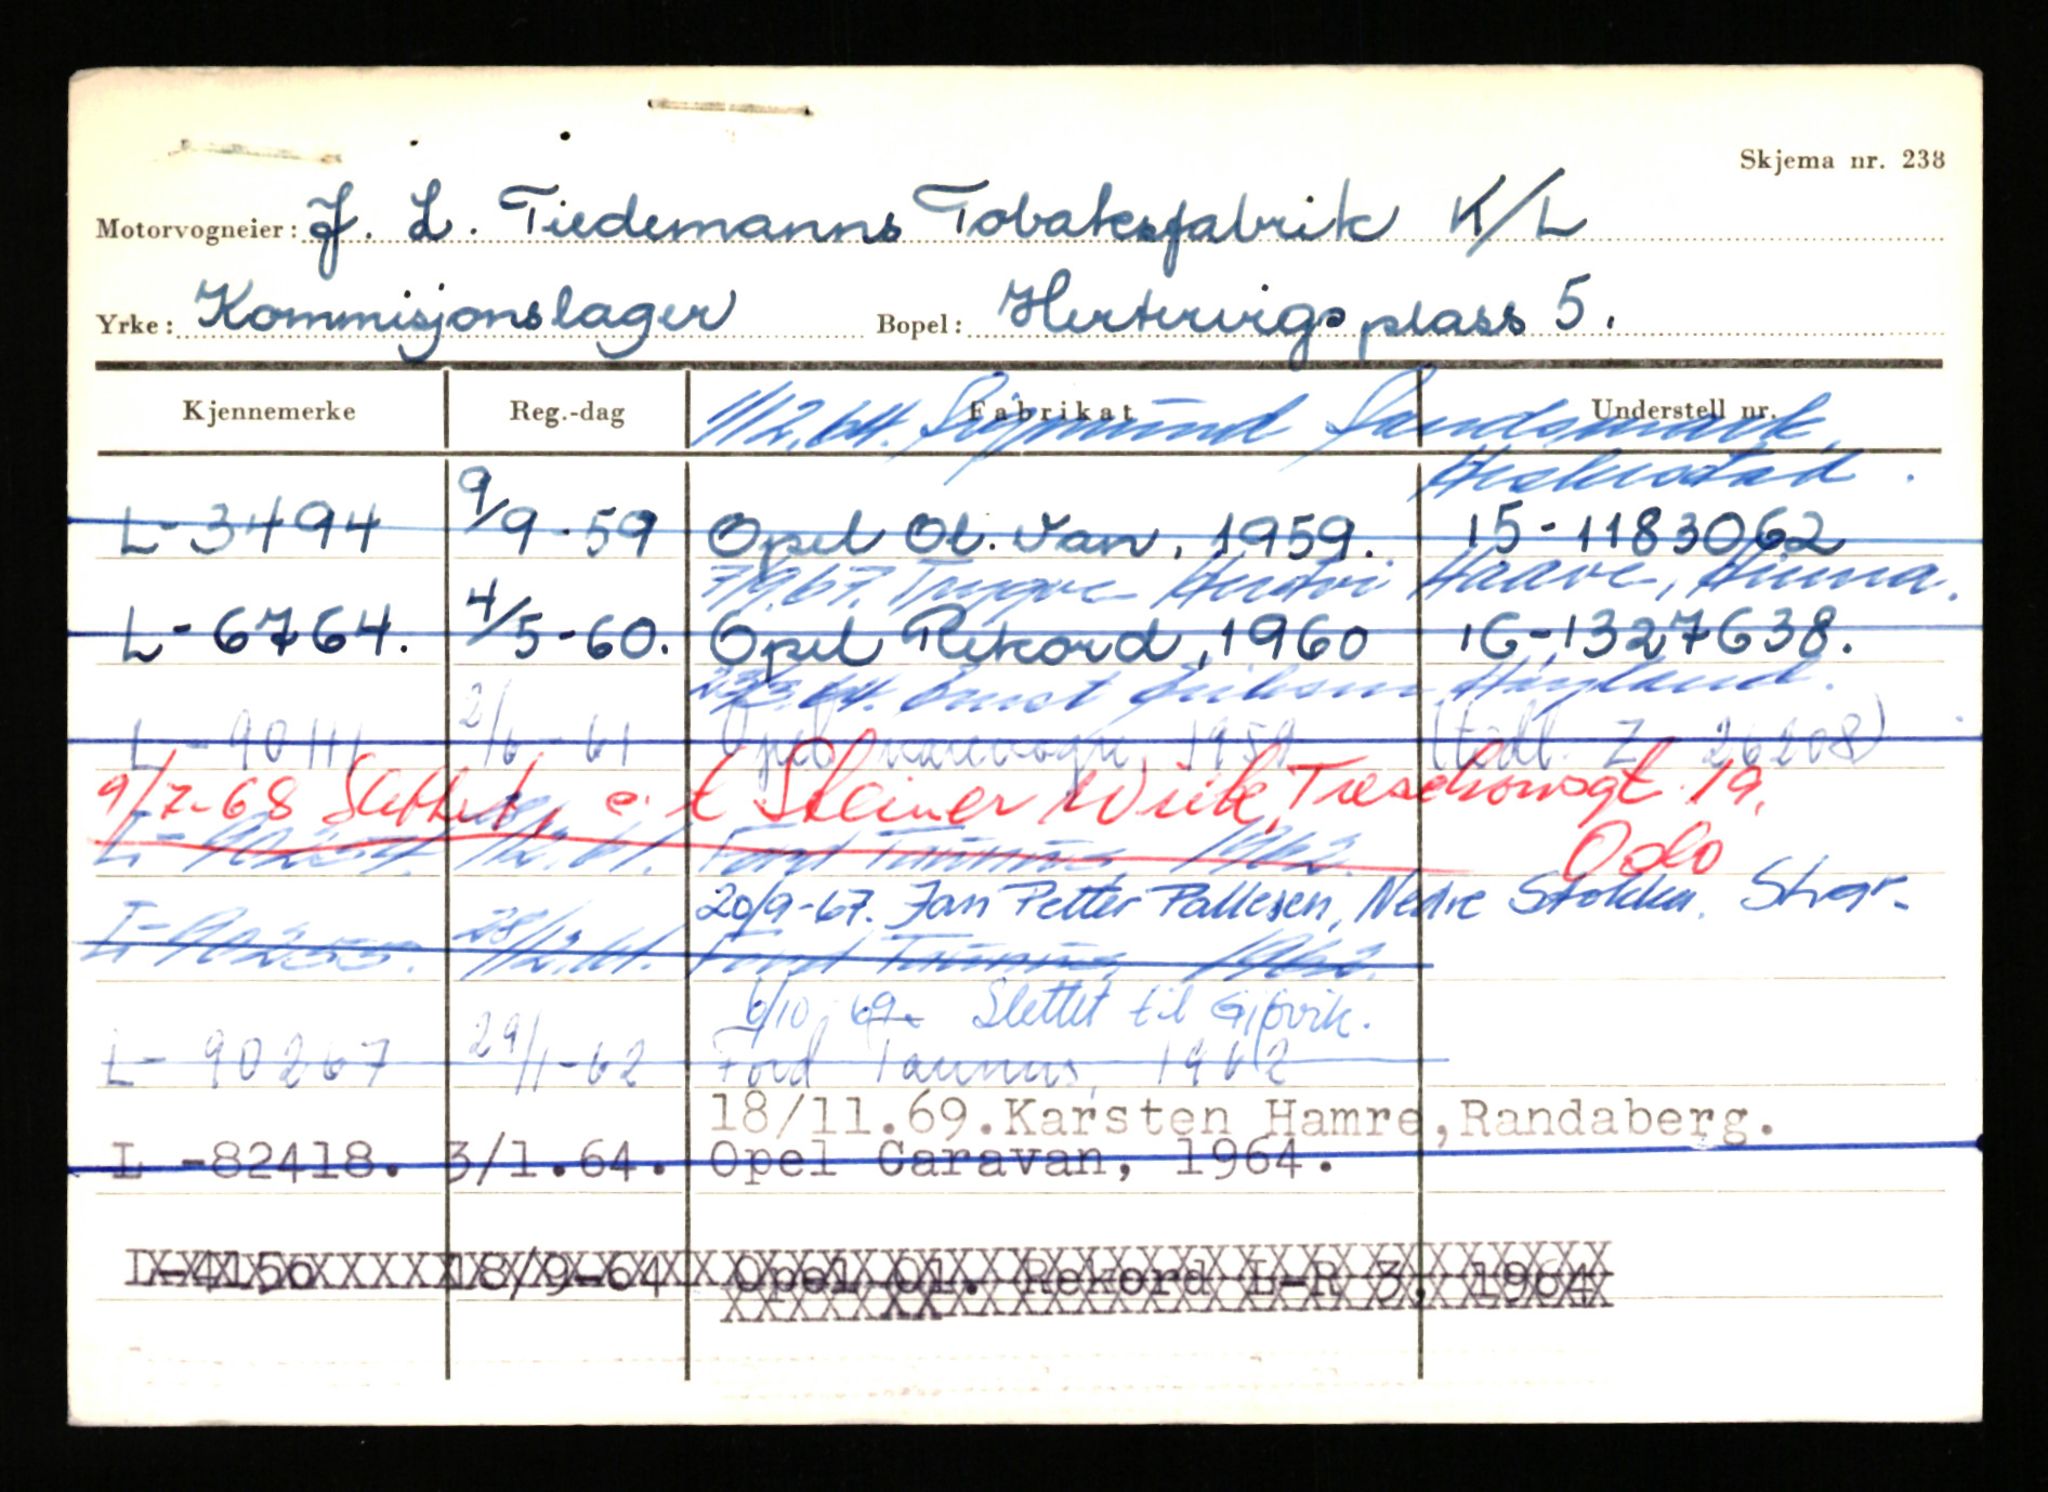 Skjema nr. 238
Motorvogneier: J. L. Tiedemanns Tobaksfabrik K/L
Yrke: Kommisjonslager Bopel: Hertervigsplass 5.
Kjennemerke Reg.-dag Fabrikat Understell nr.
1/12.64. Sigmund Sandsmark,
Heskestad.
L-3494 9/9-59 Opel Ol. Van, 1959. 15-1183062
7/9.67. Haave, Hinna.
L-6764. 4/5-60. Opel Rekord, 1960 16-1327638.
23/3.64. Høyland.
L-90111 2/6-61 Opel varevogn, 1959 Z 26208)
9/7-68 Slettet, Steiner Wiik, Treschowsgt. 19,
Oslo
12.61. Ford Taunus, 1962.
20/9-67. Jan Petter Pallesen, Nedre Stokka. Stvgr-
L-90255. 28/12.61. Ford Taunus, 1962.
6/10-69. Slettet til Gjøvik.
L-90267 29/1-62 Ford Taunus, 1962
18/11.69.Karsten Hamre,Randaberg.
L -82418. 3/1.64. Opel Caravan, 1964.
L-4156 18/9-64 Opel Ol. Rekord L-R 3, 1964